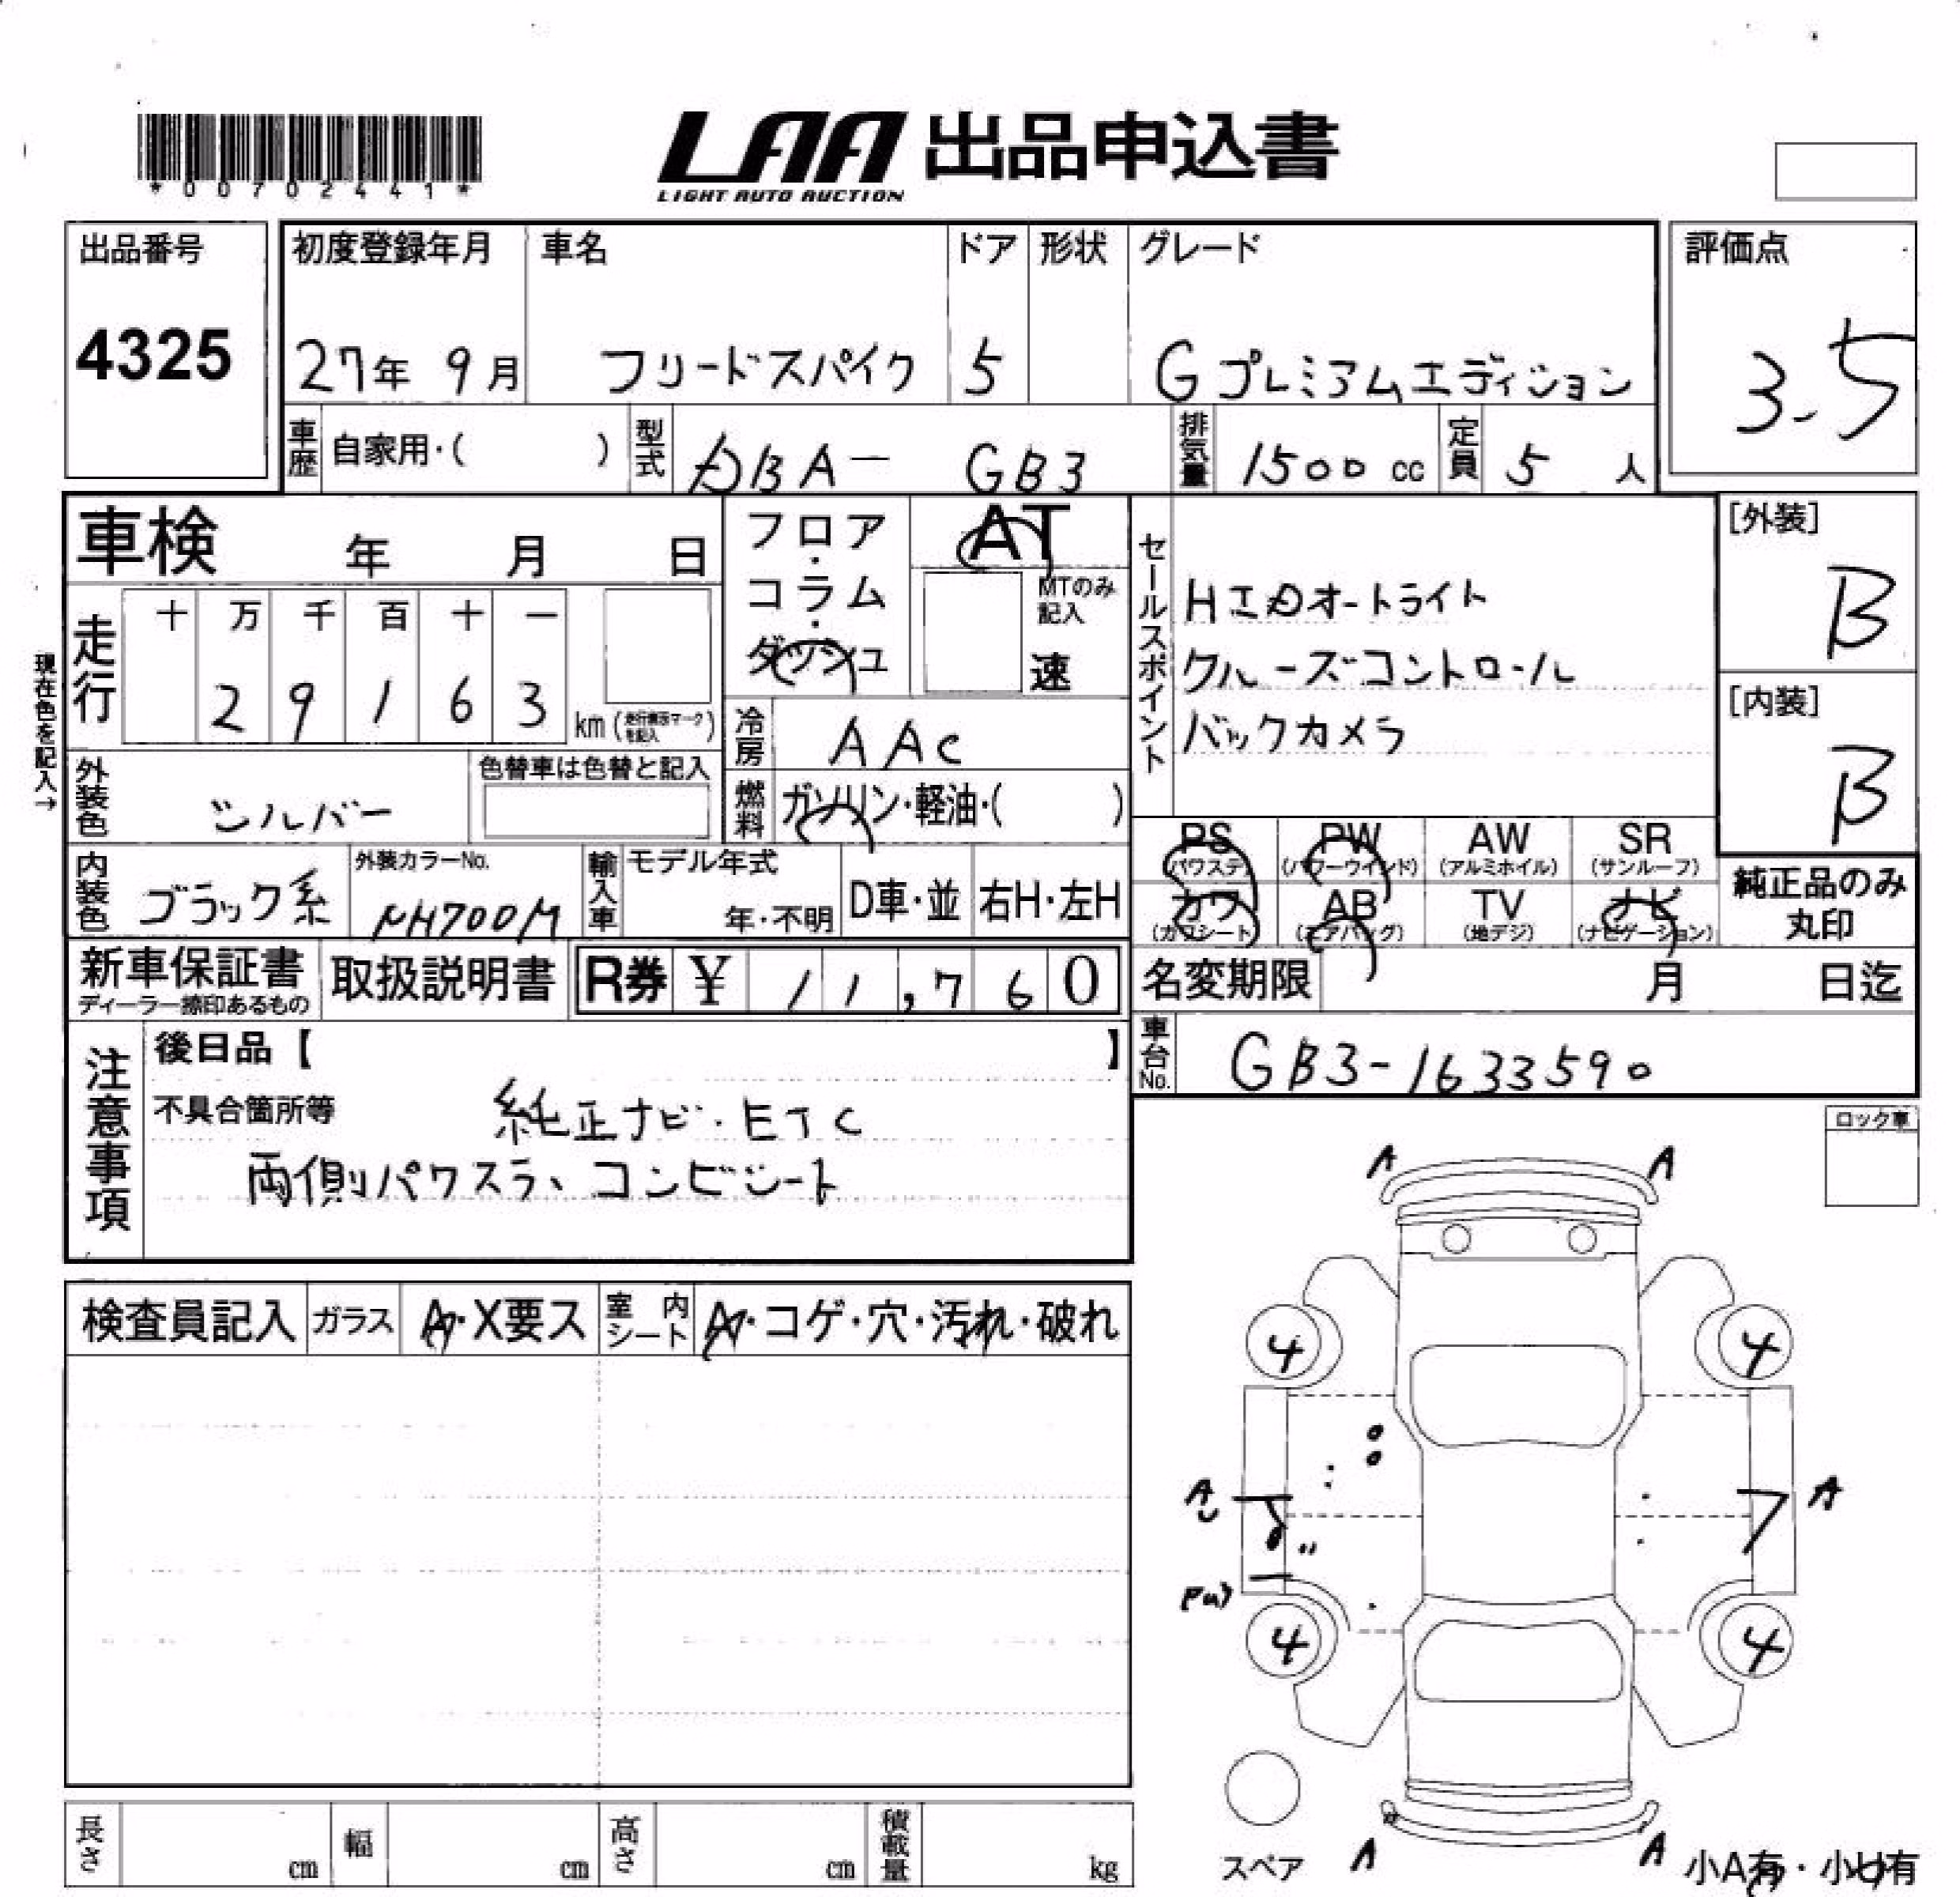 *00702441*
LAA 出品申込書
LIGHT AUTO AUCTION
出品番号
4325
初度登録年月
27年 9月
車名
フリードスパイク
ドア
5
形状
グレード
Gプレミアムエディション
評価点
3.5
車歴 自家用・( )
型式 DBA- GB3
排気量 1500 cc
定員 5 人
車検 年 月 日
フロア・コラム・ダッシュ
AT
MTのみ記入
速
セールスポイント
HIDオートライト
クルーズコントロール
バックカメラ
[外装]
B
[内装]
B
現在色を記入→
走行
十 万 千 百 十 一
2 9 1 6 3 km
冷房 AAC
燃料 ガソリン・軽油・( )
外装色 シルバー
色替車は色替と記入
PS (パワステ)
PW (パワーウインド)
AW (アルミホイル)
SR (サンルーフ)
カワ (カワシート)
AB (エアバッグ)
TV (地デジ)
ナビ (ナビゲーション)
純正品のみ丸印
内装色 ブラック系
外装カラーNo.
NH700M
輸入車
モデル年式
年・不明
D車・並
右H・左H
新車保証書
ディーラー捺印あるもの
取扱説明書
R券 ¥ 11,760
名変期限 月 日迄
車台No. GB3-1633590
注意事項
後日品【 】
不具合箇所等
純正ナビ・ETC
両側パワスラ、コンビシート
ロック車
検査員記入
ガラス A・X要ス
室内シート A・コゲ・穴・汚れ・破れ
A A
4 4
A A
4 4
スペア
A A
小A有・小U有
長さ cm
幅 cm
高さ cm
積載量 kg